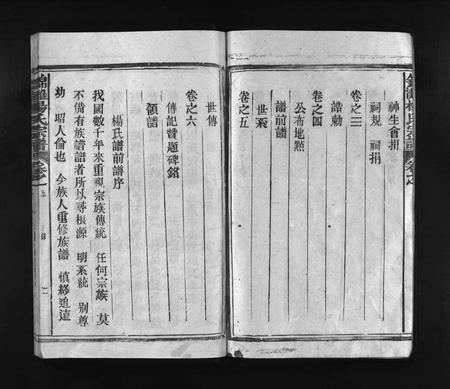 神生會捐
祠規 祠捐
卷之三
誥勅
卷之四
公布地點
譜前譜
世系
卷之五
世傳
卷之六
傳記贊題碑銘
領譜
楊氏譜前譜序
我國數千年來重視宗族傳統 任何宗族 莫
不備有族譜譜者所以尋根源 明系統 別尊
幼 昭人倫也 今族人重修族譜 慎終追遠
楊氏宗譜
卷之